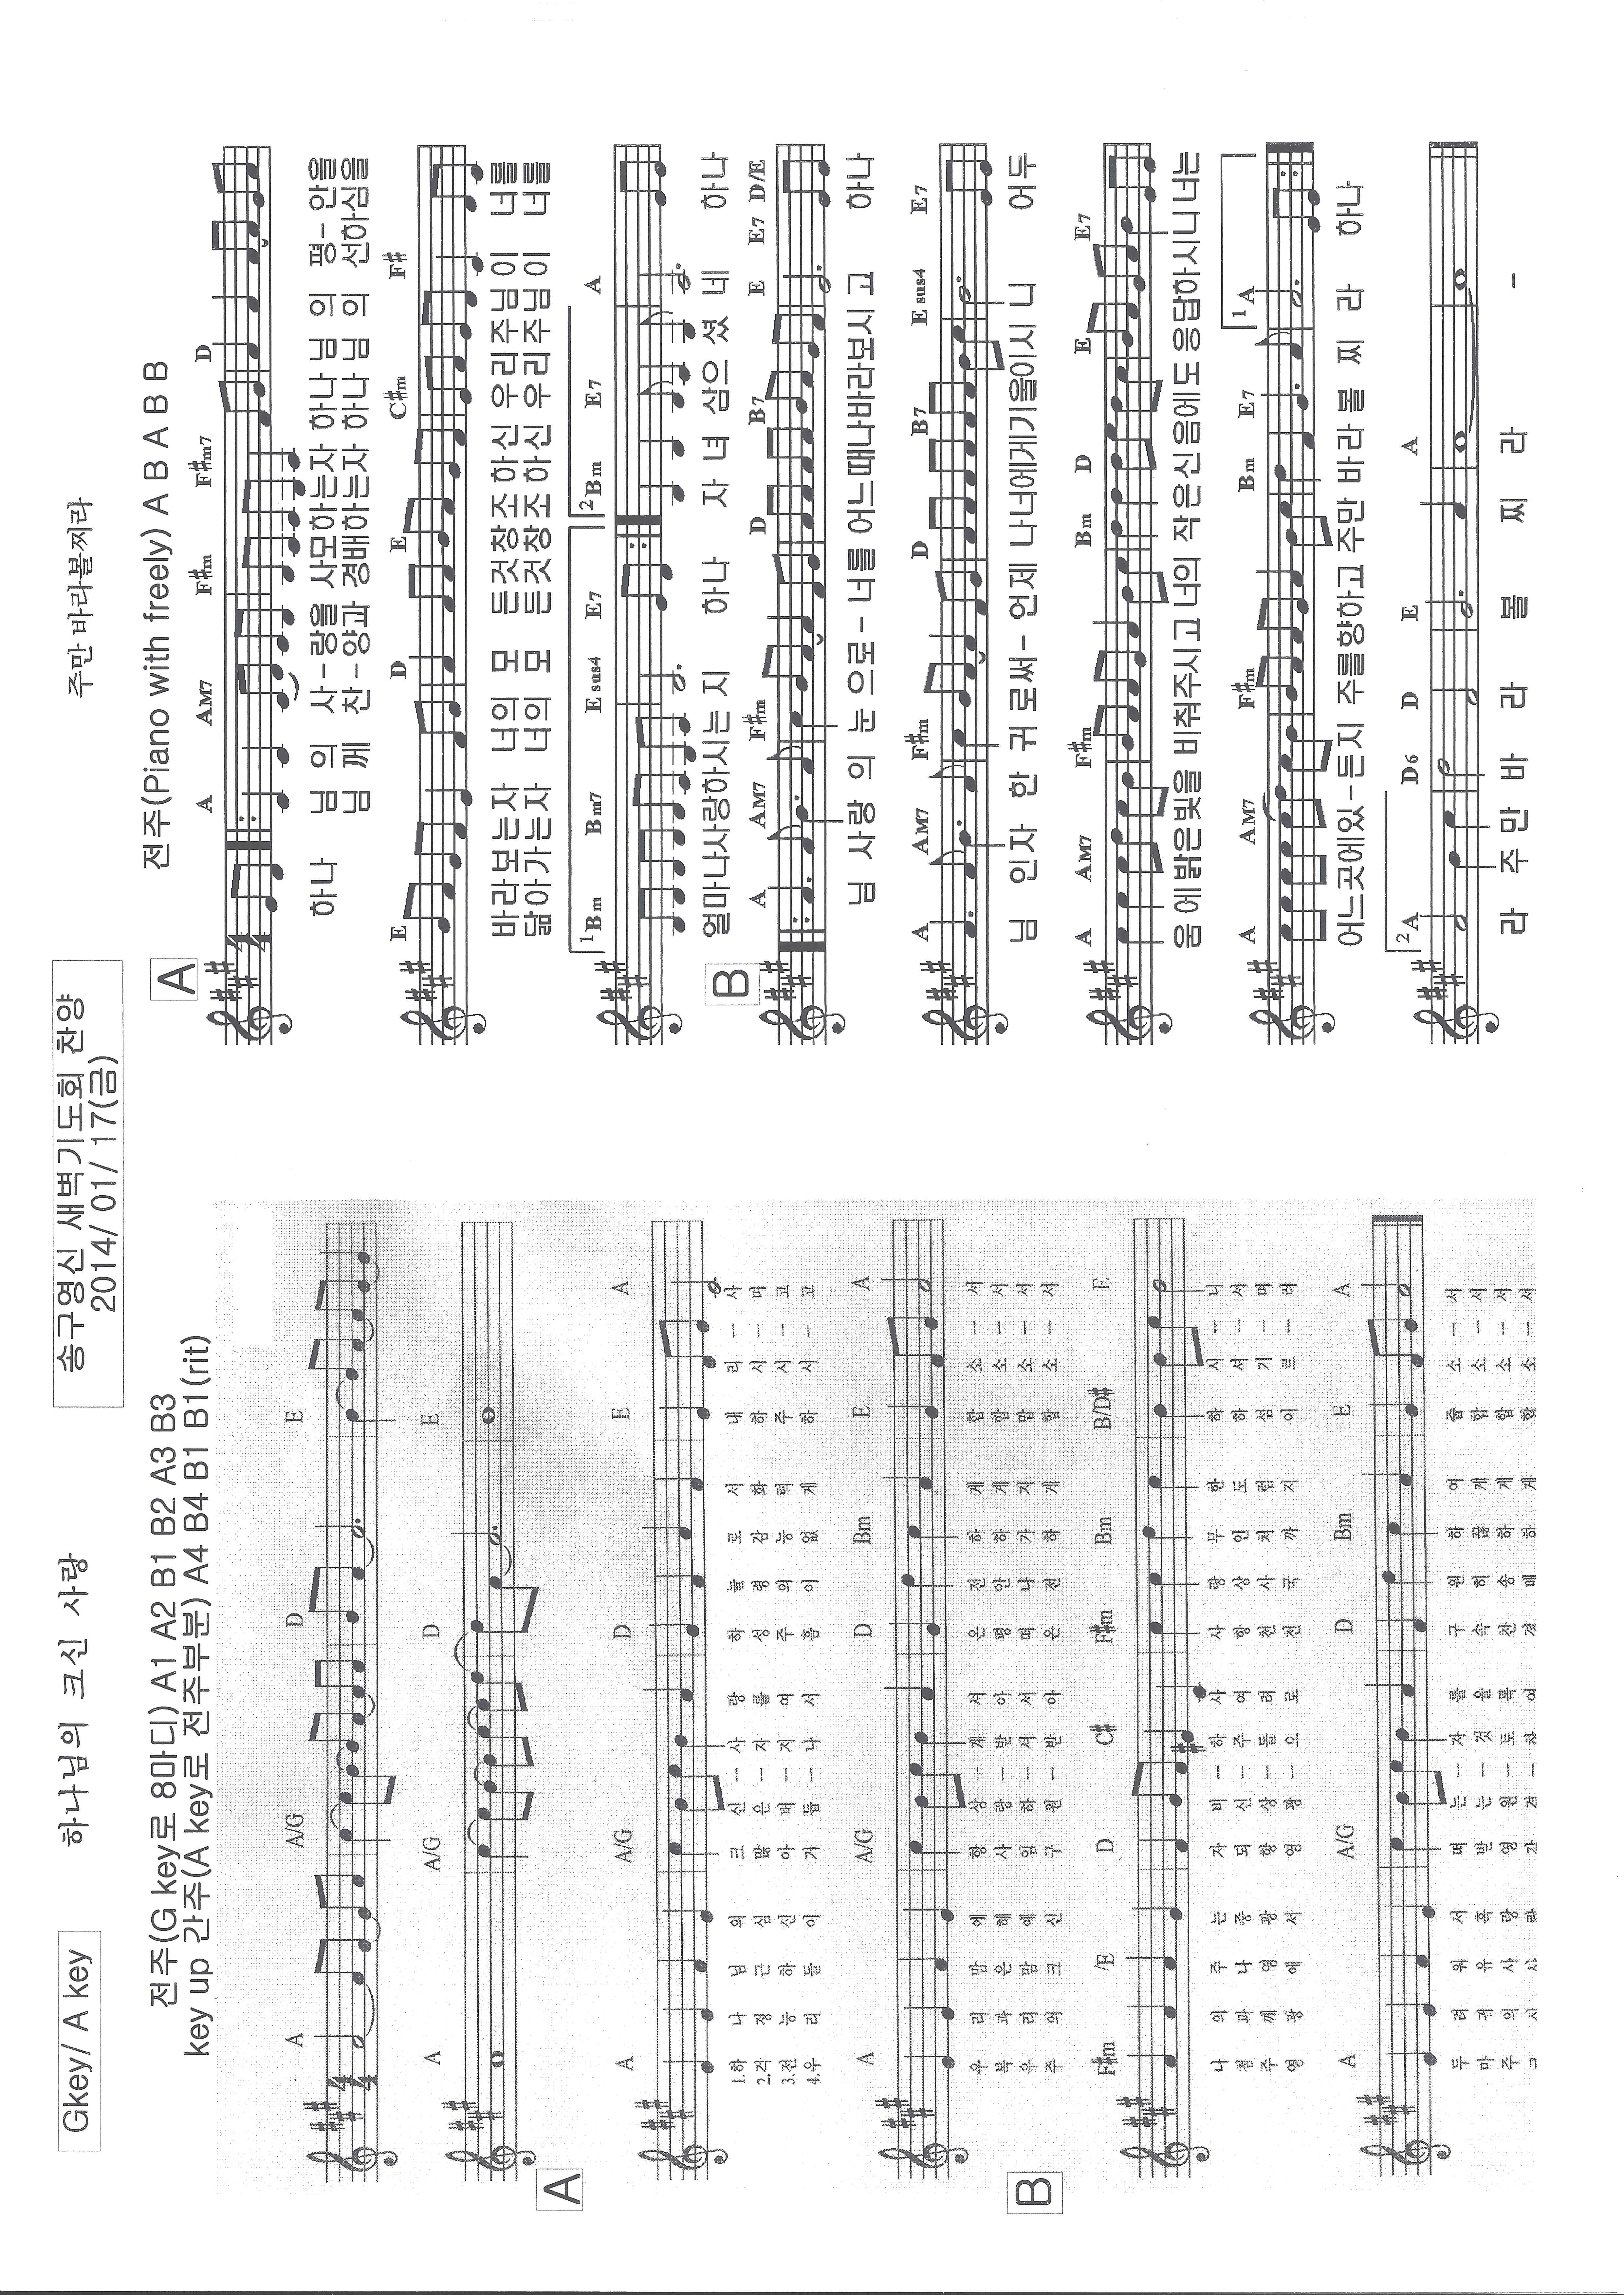 송구영신 새벽기도회 찬양
2014/ 01/ 17(금)
Gkey/ A key
하나님의 크신 사랑
전주(G key로 8마디) A1 A2 B1 B2 A3 B3
key up 간주(A key로 전주부분) A4 B4 B1 B1(rit)
A A/G D E
A A/G D E
A
A A/G D E A
1.하 나 님 의 크 신 - 사 랑 하 늘 로 서 내 리 - 사
2.걱 정 근 심 많 은 - 자 들 성 령 감 화 하 시 - 며
3.전 능 하 신 아 버 - 지 여 주 의 능 력 주 시 - 고
4.우 리 들 이 거 듭 - 나 서 흠 이 없 게 하 시 - 고
A A/G D Bm E A
우 리 맘 에 항 상 - 계 셔 온 전 하 게 함 소 - 서
복 과 은 혜 사 랑 - 받 아 평 안 하 게 함 소 - 서
우 리 맘 에 임 하 - 셔 서 떠 나 가 지 맙 소 - 서
주 의 크 신 구 원 - 받 아 온 전 하 게 함 소 - 서
B
F#m /E D C# F#m Bm B/D# E
나 의 주 는 자 비 - 하 사 사 랑 무 한 하 시 - 니
첨 과 나 중 되 신 - 주 여 항 상 인 도 하 셔 - 서
주 께 영 광 항 상 - 돌 려 천 사 처 럼 섬 기 - 며
영 광 에 서 영 광 - 으 로 천 국 까 지 이 르 - 러
A A/G D Bm E A
두 려 워 서 떠 는 - 자 를 구 원 하 여 줍 소 - 서
마 귀 유 혹 받 는 - 것 을 속 히 끊 게 함 소 - 서
주 의 사 랑 영 원 - 토 록 찬 송 하 게 함 소 - 서
경 배 하 게 함 소 - 서
주만 바라볼찌라
전주(Piano with freely) A B A B B
A
A AM7 F#m F#m7 D
하나 님 의 사-랑을 사모하는자 하나 님 의 평-안을
님 께 찬-양과 경배하는자 하나 님 의 선하심을
E D E C#m F#
바라보는자 너의 모 든것창조하신 우리주님이 너를
닮아가는자 너의 모 든것창조하신 우리주님이 너를
1 Bm Bm7 E sus4 E7 2 Bm E7 A
얼마나사랑하시는 지 하나 자 녀 삼으 셨 네 하나
B
A AM7 F#m D B7 E E7 D/E
님 사랑 의 눈 으로- 너를 어느때나바라보시 고 하나
A AM7 F#m D B7 E sus4 E7
님 인자 한 귀 로써- 언제 나너에게기울이시 니 어두
A AM7 F#m Bm D E E7
움 에밝은빛을 비춰주시고 너의 작은신음에도 응답하시니 너는
A AM7 F#m Bm E7 1 A
어느곳에있-든지 주를향하고 주만 바라 볼 찌 라 하나
2 A D6 D E A
라 주 만 바 라 볼 찌 라 -